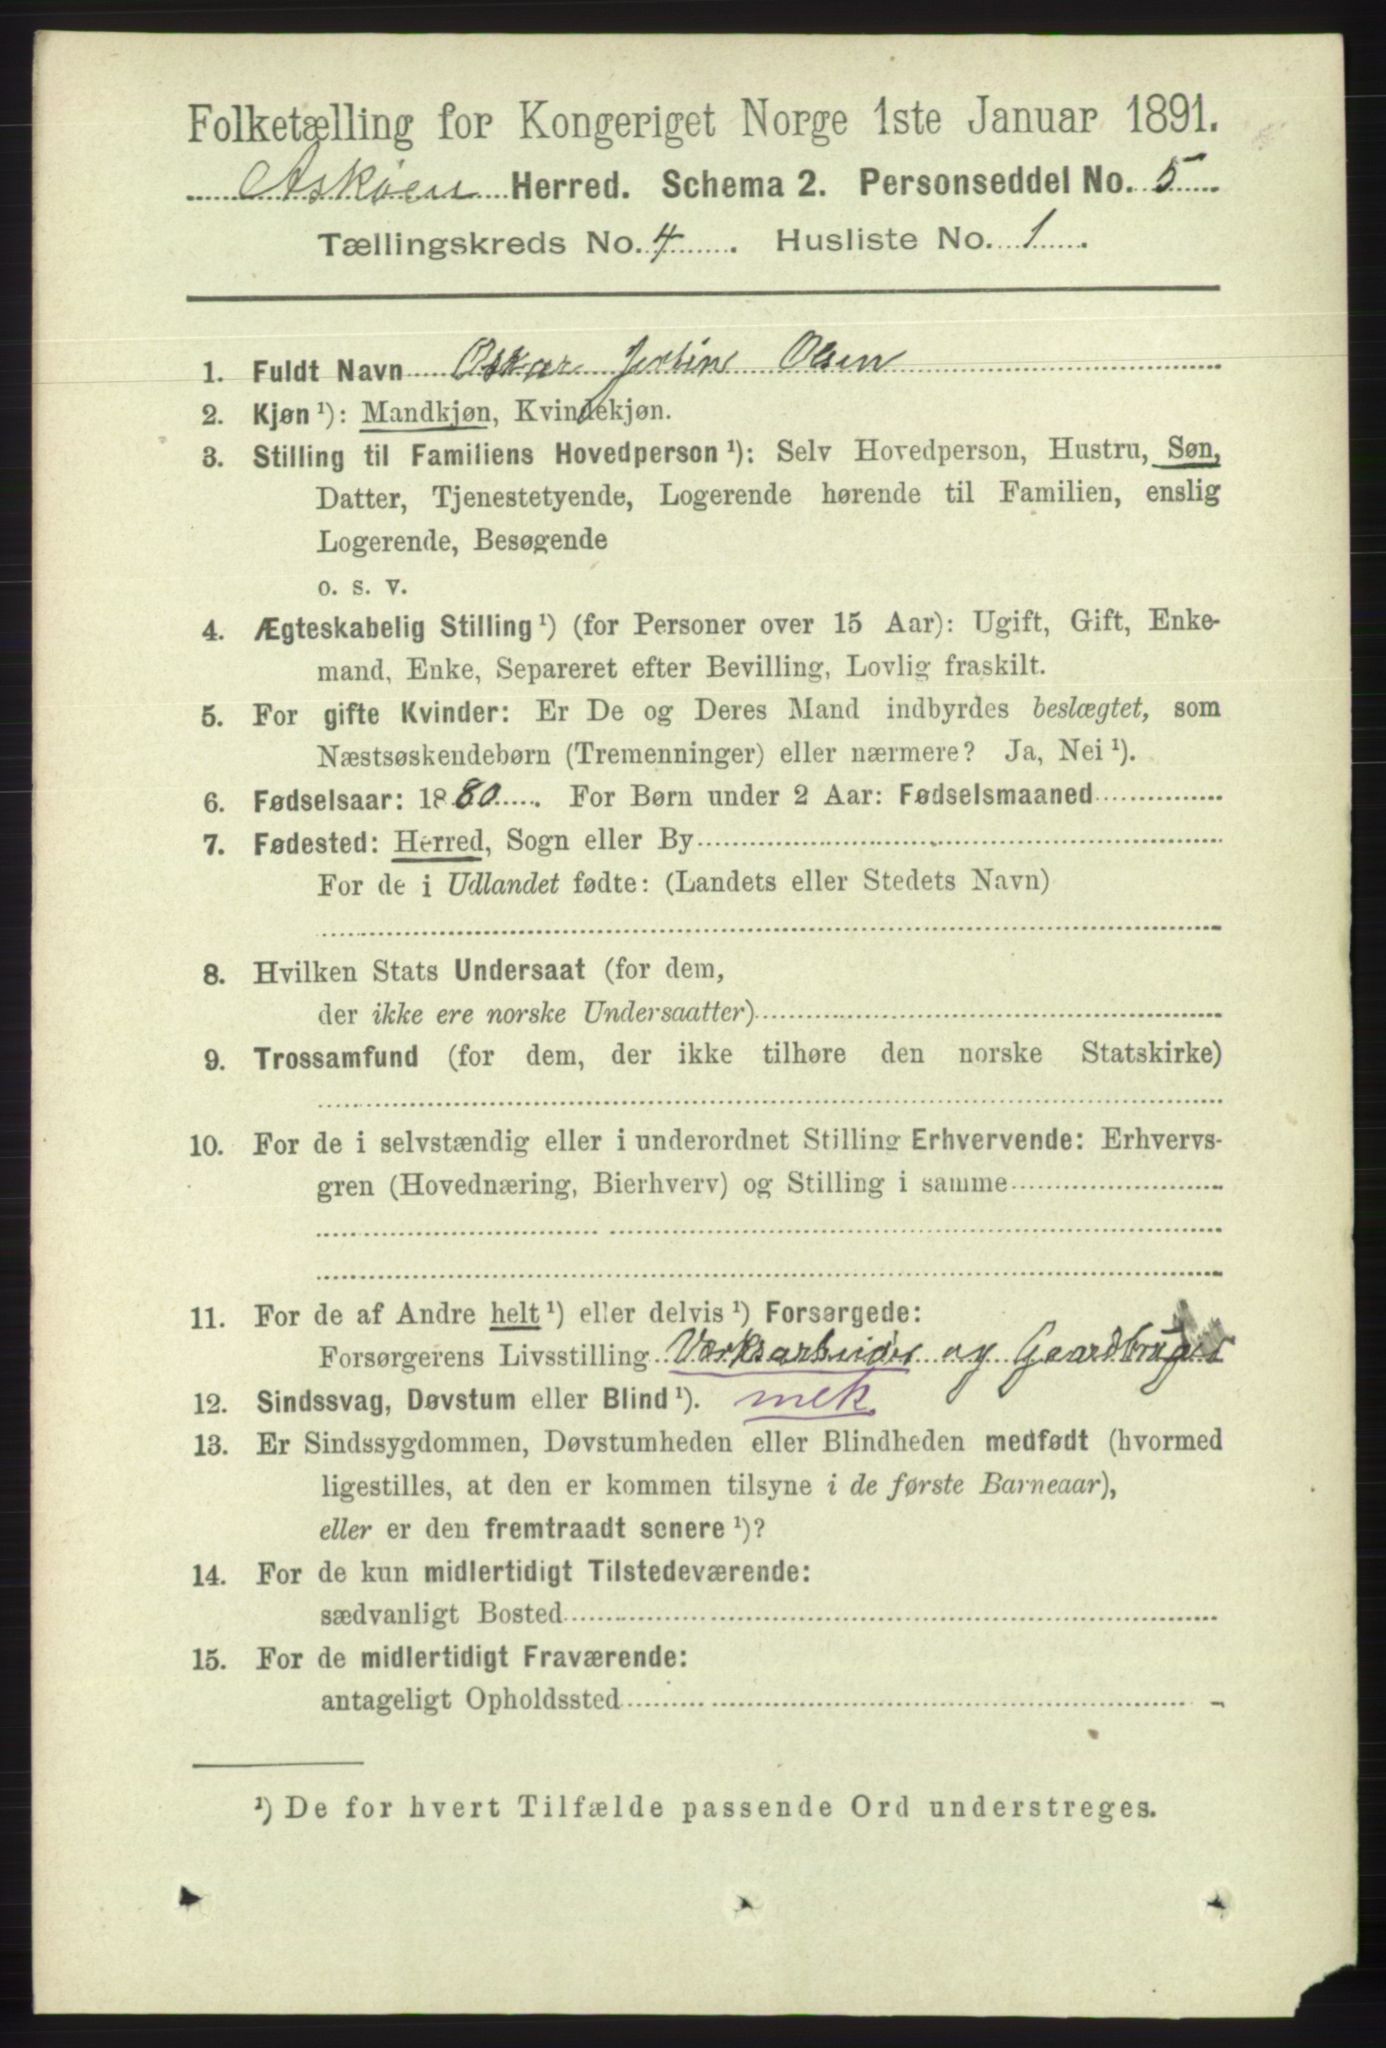 Folketælling for Kongeriget Norge 1ste Januar 1891.
Askøen Herred. Schema 2. Personseddel No. 5
Tællingskreds No. 4. Husliste No. 1
1. Fuldt Navn Oskar Olsen
2. Kjøn ¹): Mandkjøn, Kvindekjøn.
3. Stilling til Familiens Hovedperson ¹): Selv Hovedperson, Hustru, Søn,
Datter, Tjenestetyende, Logerende hørende til Familien, enslig
Logerende, Besøgende
o. s. v.
4. Ægteskabelig Stilling ¹) (for Personer over 15 Aar): Ugift, Gift, Enke-
mand, Enke, Separeret efter Bevilling, Lovlig fraskilt.
5. For gifte Kvinder: Er De og Deres Mand indbyrdes beslægtet, som
Næstsøskendebørn (Tremenninger) eller nærmere? Ja, Nei ¹).
6. Fødselsaar: 1880. For Børn under 2 Aar: Fødselsmaaned
7. Fødested: Herred, Sogn eller By
For de i Udlandet fødte: (Landets eller Stedets Navn)
8. Hvilken Stats Undersaat (for dem,
der ikke ere norske Undersaatter)
9. Trossamfund (for dem, der ikke tilhøre den norske Statskirke)
10. For de i selvstændig eller i underordnet Stilling Erhvervende: Erhvervs-
gren (Hovednæring, Bierhverv) og Stilling i samme
11. For de af Andre helt ¹) eller delvis ¹) Forsørgede:
Forsørgerens Livsstilling Værksarbeider og Gaardbruger
12. Sindssvag, Døvstum eller Blind ¹). mek
13. Er Sindssygdommen, Døvstumheden eller Blindheden medfødt (hvormed
ligestilles, at den er kommen tilsyne i de første Barneaar),
eller er den fremtraadt senere ¹)?
14. For de kun midlertidigt Tilstedeværende:
sædvanligt Bosted
15. For de midlertidigt Fraværende:
antageligt Opholdssted
¹) De for hvert Tilfælde passende Ord understreges.